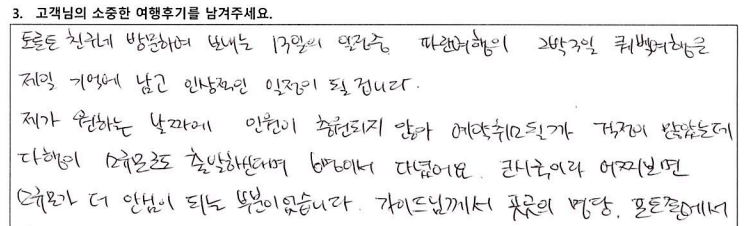 3. 고객님의 소중한 여행후기를 남겨주세요.
토론토 친구네 방문하여 보내는 13일의 일정중 파란여행의 2박3일 퀘백여행을
제일 기억에 남고 인상적인 일정이 될 겁니다.
제가 원하는 날짜에 인원이 충원되지 않아 예약취소될까 걱정이 많았는데
다행이 소규모로도 출발하신대며 6명이서 다녔어요. 코시국이라 어찌보면
소규모가 더 안심이 되는 부분이었습니다. 가이드님께서 곳곳의 명당, 포토존에서